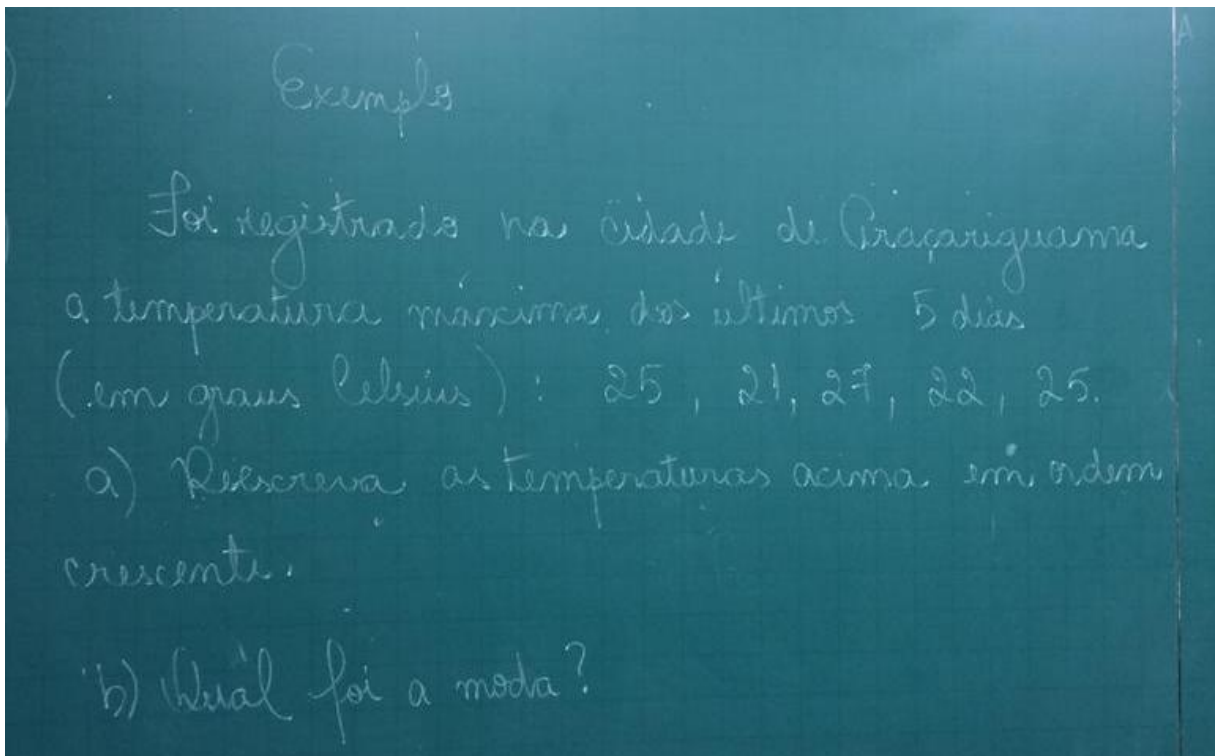 Exemplo
Foi registrado na cidade de Araçariguama
a temperatura máxima dos últimos 5 dias
(em graus Celsius) : 25 , 21, 27, 22, 25.
a) Reescreva as temperaturas acima em ordem
crescente.
b) Qual foi a moda?